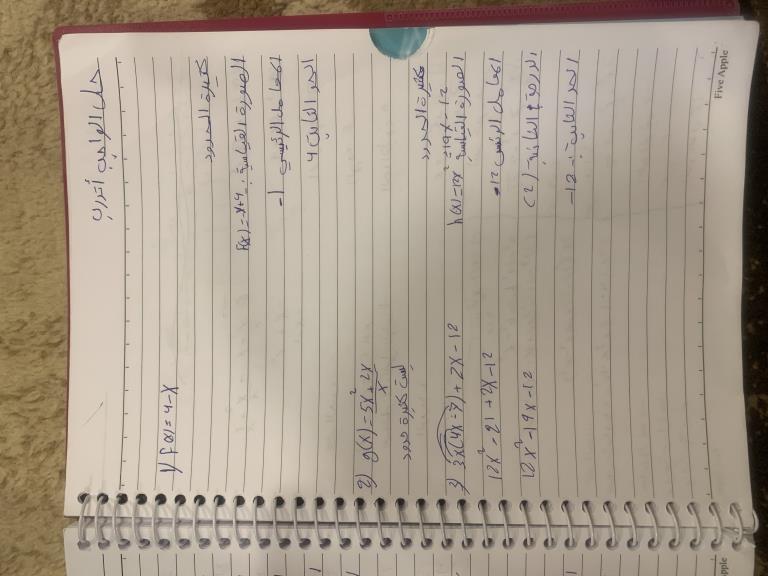 حل الواجب أتدرب
1) f(x) = 4-x
كثيرة الحدود
الصورة القياسية: f(x) = -x+4
المعامل الرئيسي -1
الحد الثابت 4
2) g(x) = 5x² + 2x/x
ليست كثيرة حدود
3) 3x(4x-7)+2x-12
كثيرة الحدود
12x²-21+2x-12
الصورة القياسية h(x)=12x²-19x-12
12x²-19x-12
المعامل الرئيسي 12
الدرجة الثانية (2)
الحد الثابت: -12
Five Apple